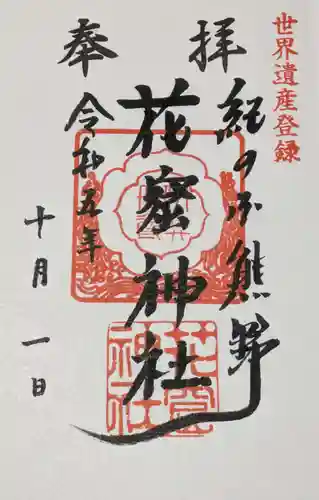 世界遺産登録
奉拝
紀の国熊野
花窟神社
令和五年
十月一日
花窟
神社